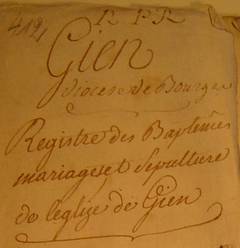 4191
R P R
Gien
diocese de Bourges
Registre des Baptemes
mariages et Sepulture
de leglise de Gien